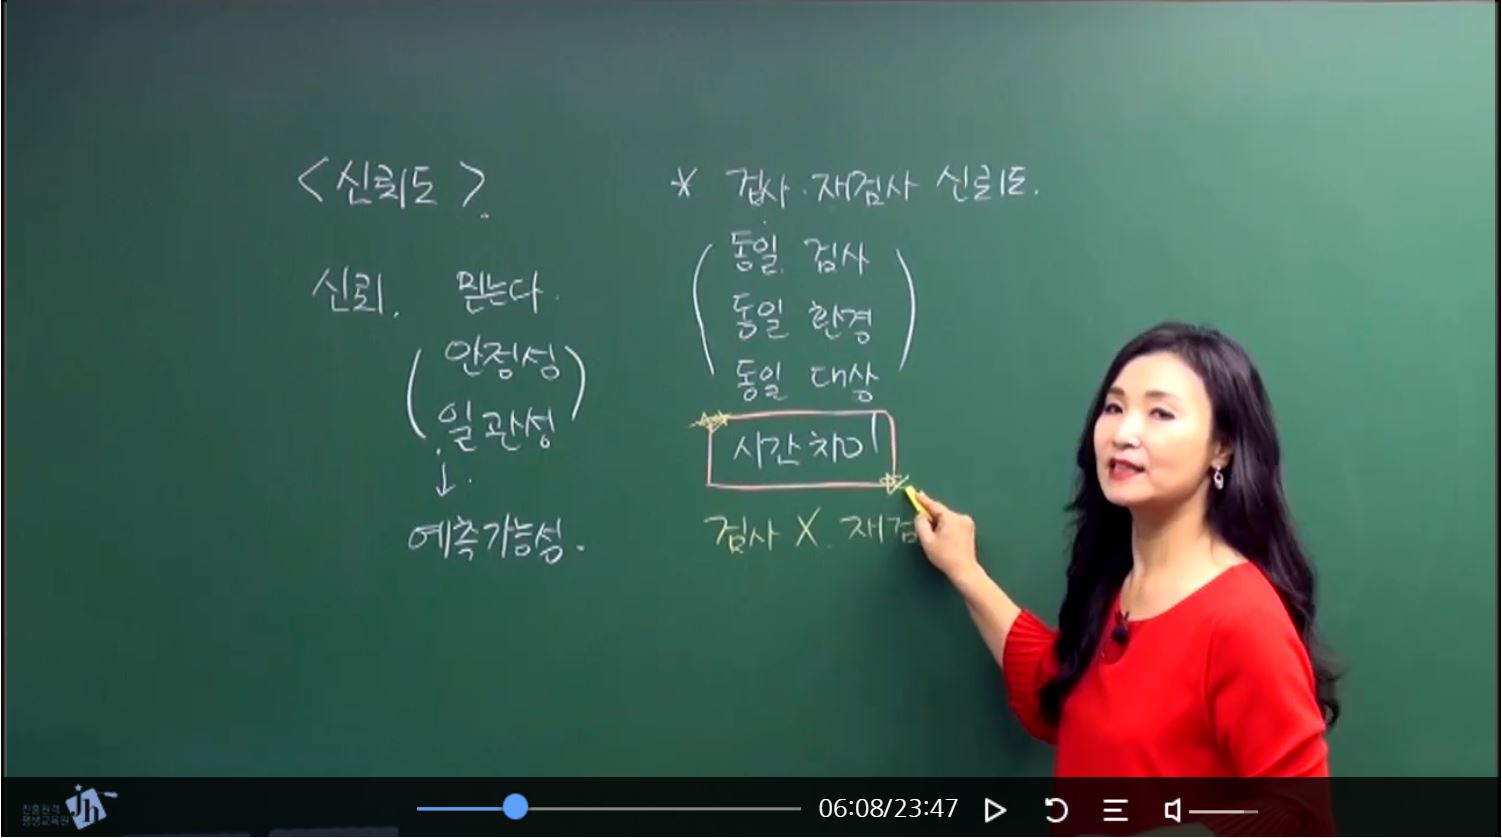 <신뢰도>.
신뢰. 믿는다.
(안정성)
(일관성)
↓.
예측가능성.
* 검사·재검사 신뢰도.
(동일 검사)
동일 환경
동일 대상
시간차이
검사 X. 재검
진흥원격
평생교육원
jh
06:08/23:47